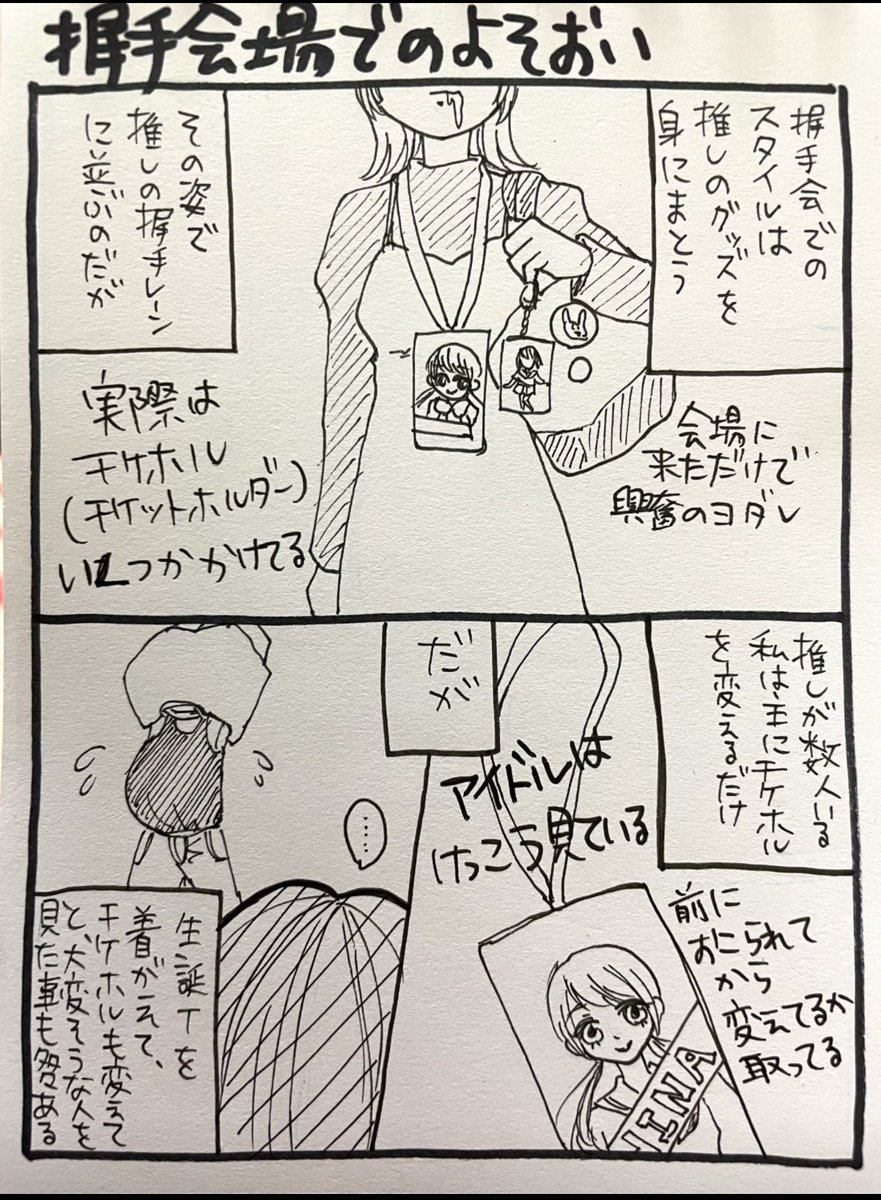 握手会場でのよそおい
握手会での
スタイルは
推しのグッズを
身にまとう
その姿で
推しの握手レーン
に並ぶのだが
会場に
来ただけで
興奮のヨダレ
実際は
チケホル
(チケットホルダー)
いくつかかけてる
推しが数人いる
私は主にチケホル
を変えるだけ
だが
アイドルは
けっこう見ている
前に
おこられて
から
変えてるか
取ってる
MINA
‥‥
生誕Tを
着がえて、
チケホルも変えて
と、大変そうな人を
見た事も多々ある